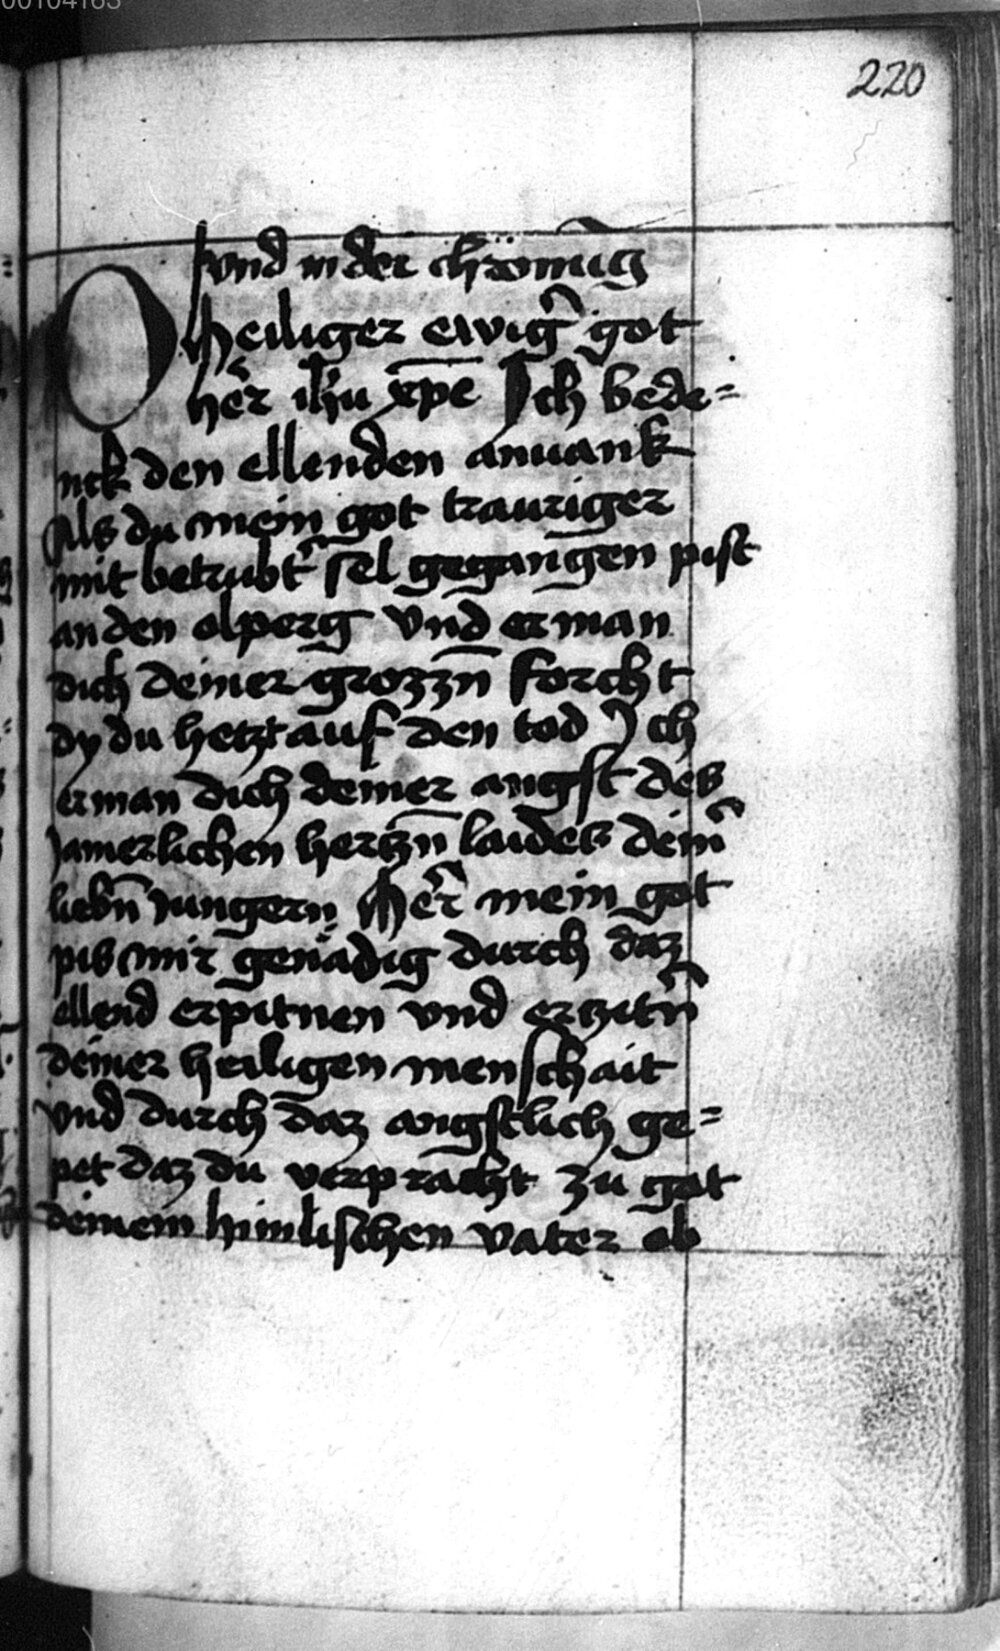 00104163
220
vnd in der chrönūg
O heiliger ewig̃ got
her̃ ih̄u xp̄e Ich bede=
nck den ellenden anuank
Als du mein got trauriger
mit betrubt̃ sel gegangen pist
an den olperg Vnd erman
dich deiner grozzn̄ forcht
dy du hetzt auf den tod Ich
erman dich deiner angst des
Jamerlichen hertzn̄ laides deinr̃
liebn̄ Jungern Her̃ mein got
pis mir genädig durch daz
ellend erpitnen vnd erzitr̃n
deiner heiligen menschait
Vnd durch daz angstlich ge=
pet daz du verpracht zu got
deinem himlischen vater ob